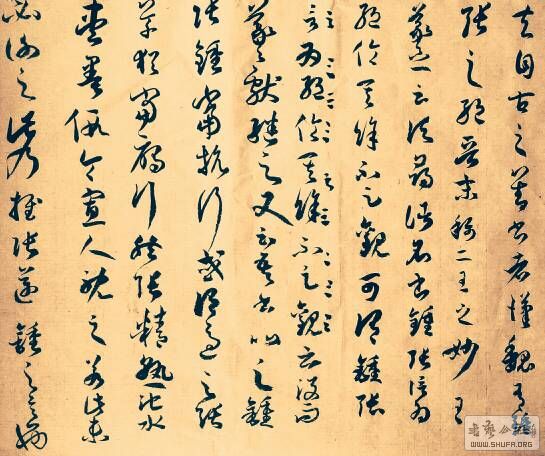 夫自古之善書者漢魏有鍾
張之絕晉末稱二王之妙王
羲之云頃尋諸名書鍾張信為
絕倫其餘不足觀可謂鍾張
信為絕倫其餘不足觀云沒而
羲獻繼之又云吾書比之鍾
張鍾當抗行或謂過之張
草猶當雁行然張精熟池水
盡墨假令寡人耽之若此未
必謝之此乃推張邁鍾之意也
WWW.SHUFA.ORG